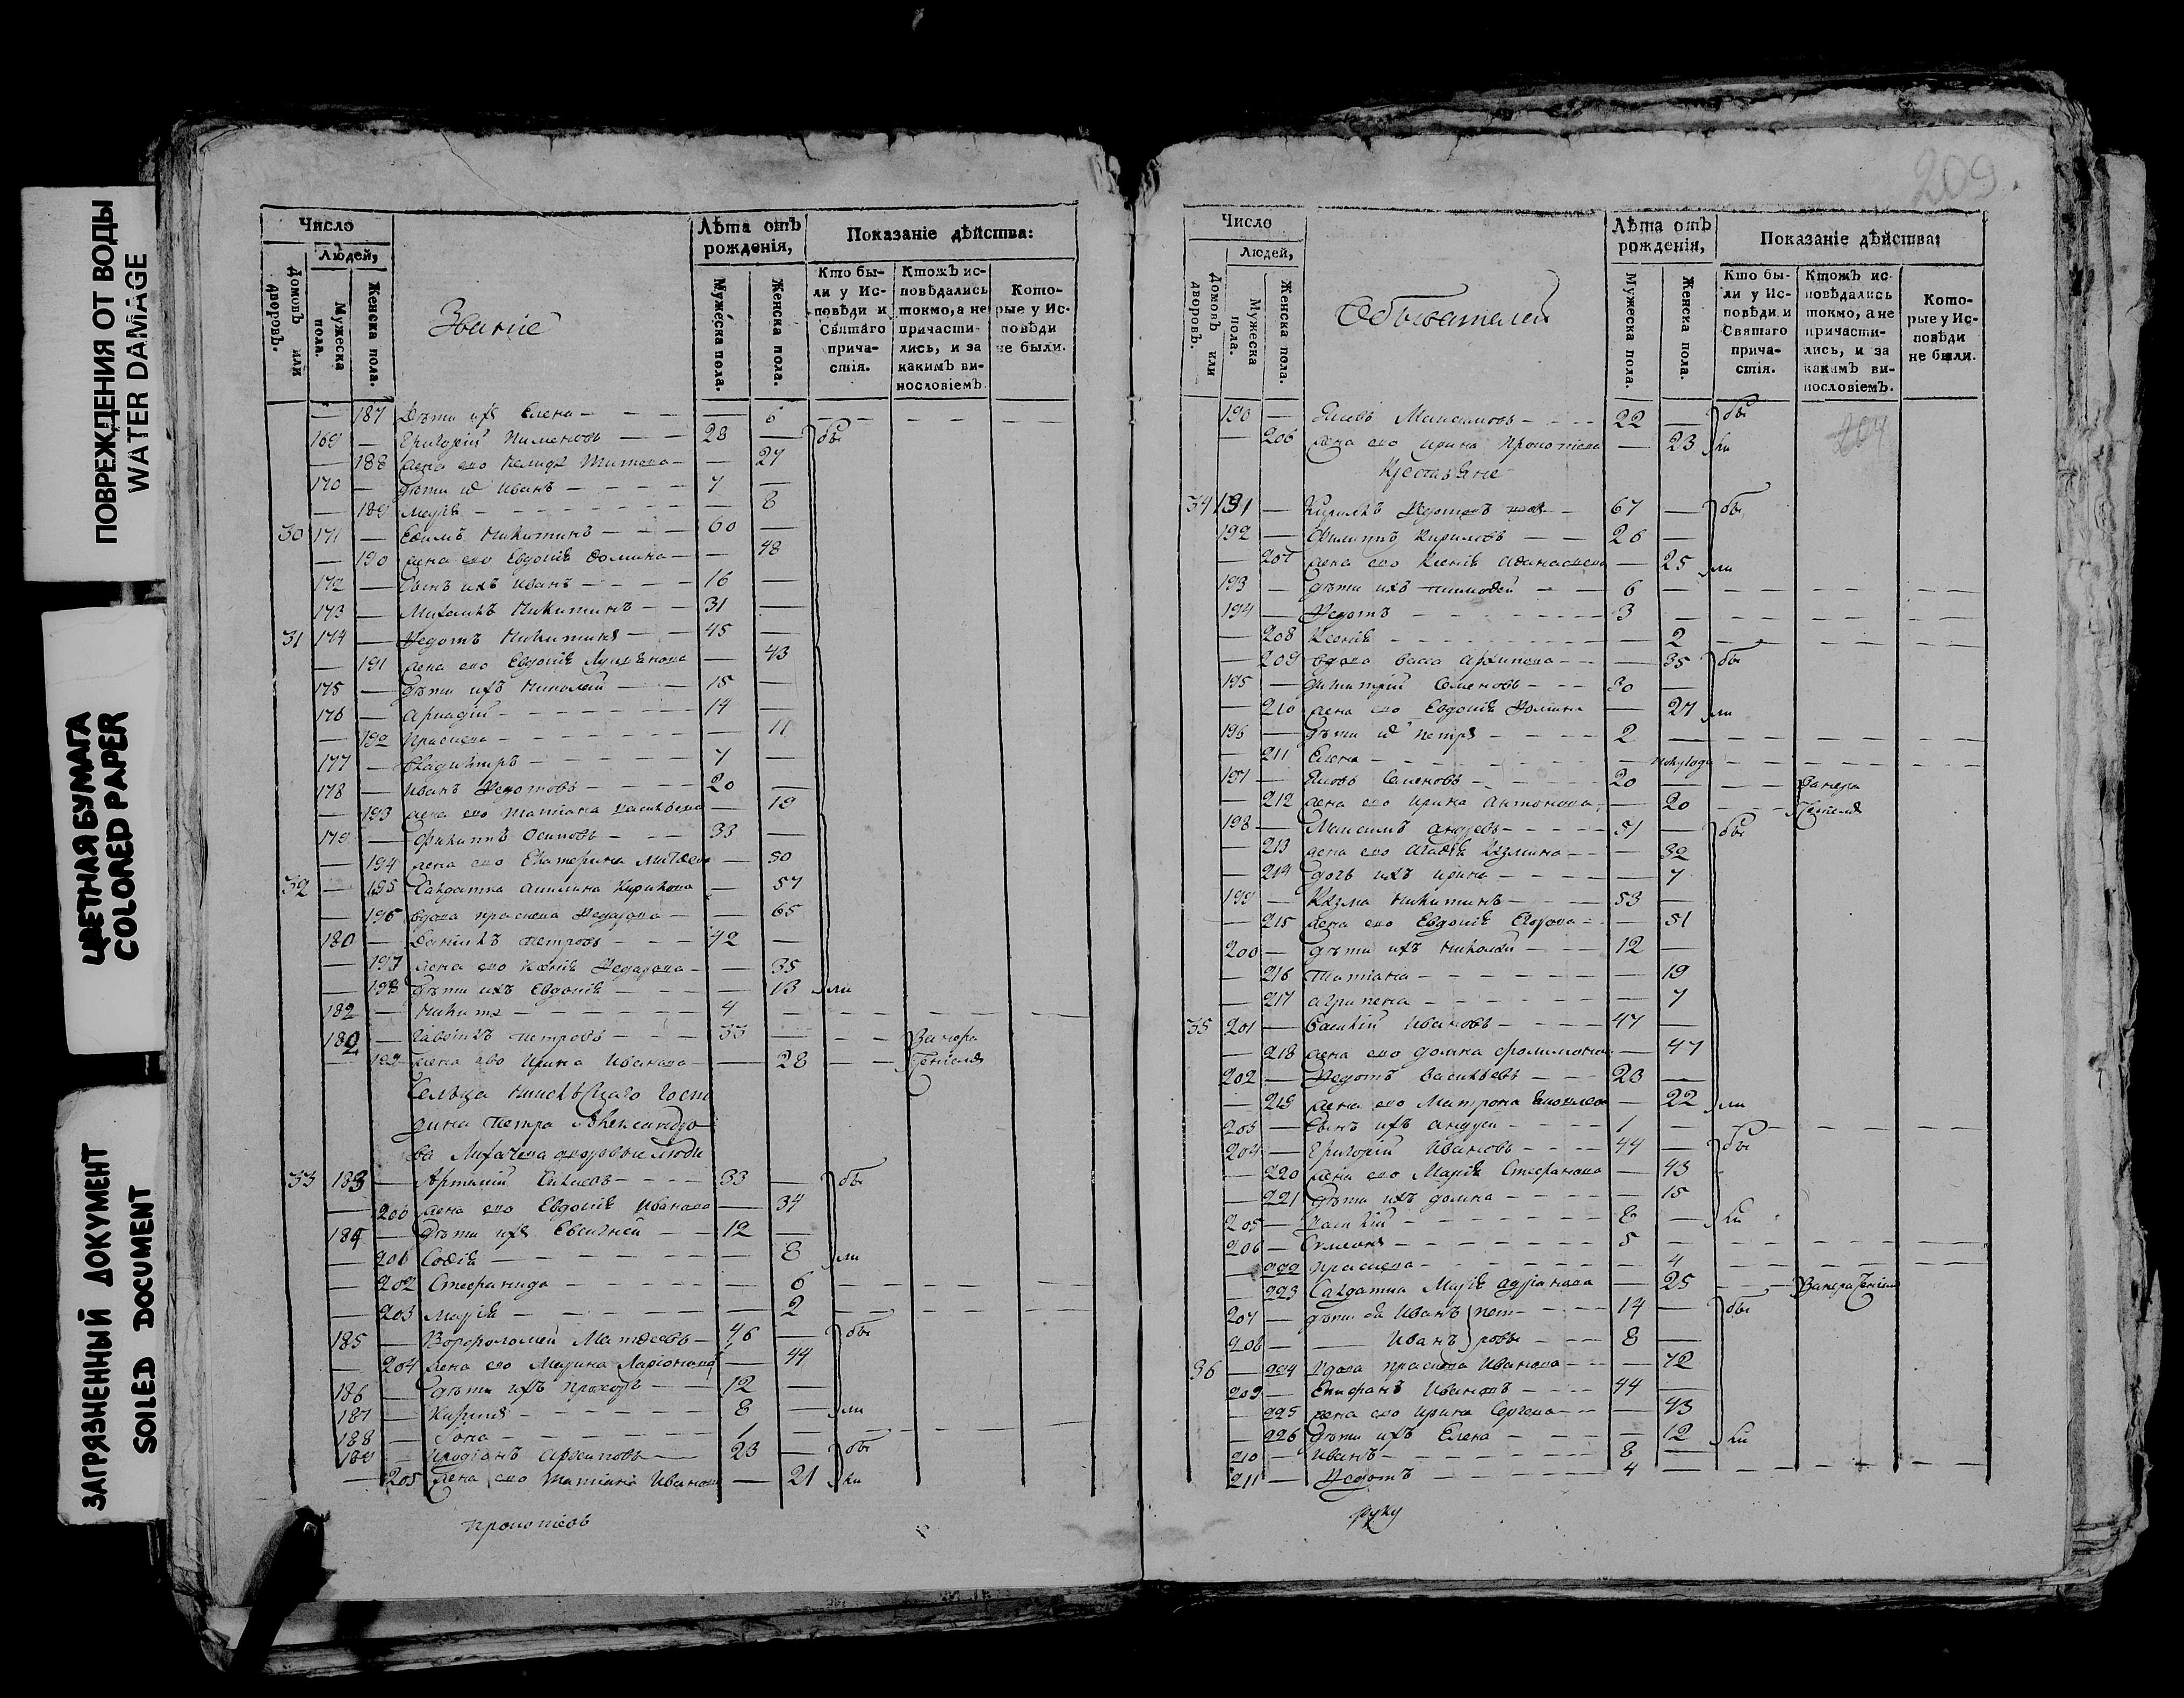 ПОВРЕЖДЕНИЯ ОТ ВОДЫ
WATER DAMAGE
ЦВЕТНАЯ БУМАГА
COLORED PAPER
ЗАГРЯЗНЕННЫЙ ДОКУМЕНТ
SOILED DOCUMENT
Число
Людей,
Домовъ или дворовъ.
Мужеска пола.
Женска пола.
Званіе
Лѣта отъ рожденія,
Мужеска пола.
Женска пола.
Показаніе дѣйства:
Кто были у Исповѣди и Святаго причастія.
Ктожъ исповѣдались токмо, а не причастились, и за какимъ винословіемъ.
Которые у Исповѣди не были.
— 187 Дѣти ихъ Елена — 6
169 — Григорій Пименовъ 28 — бы
— 188 жена его Титова — 27
170 — дѣти их Иванъ 7 —
— 189 Марія — 8
30 171 — Ефимъ Никитинъ 60 —
— 190 жена его Евдокія Фомина — 48
172 — Сынъ ихъ Иванъ 16 —
173 — Михаилъ Никитинъ 31 —
31 174 — Федотъ Никитинъ 45 —
— 191 жена его Евдокія — 43
175 — дѣти ихъ Николай 15 —
176 — Аркадій 14 —
— 192 Прасковья — 11
177 — Владимиръ 7 —
178 — Иванъ Федотовъ 20 —
— 193 жена его Татіана Васильева — 19
179 — Филиппъ Осиповъ 33 —
— 194 жена его Екатерина — 30
32 — 195 Салдатка Акилина Кирилова — 57
— 196 вдова Праскева Федорова — 65
180 — Данилъ Петровъ 42 —
— 197 жена его Ксенія Федорова — 35
— 198 дѣти ихъ Евдокія — 13 ли
182 — Никита 4 —
182 — Гавріилъ Петровъ 33 — За нера
— 199 жена его Ирина Иванова — 28 дѣніемъ
Сельца господина Петра Александрова Лихачева дворовые люди
33 183 — Артемій 33 — бы
— 200 жена его Евдокія Иванова — 34
184 — дѣти ихъ Евсигней 12 —
— 201 Софія — 8 ли
— 202 Стефанида — 6
— 203 Марія — 2
185 — Ворфоломей Матвѣевъ 46 — бы
— 204 жена его Марина Ларіонова — 44
186 — дѣти ихъ Прохоръ 12 —
187 — Кирила 8 — ли
188 — Іона 1
189 — Иродіанъ Архиповъ 23 — бы
— 205 жена его Татіана Иванова — 21 ли
Прокопіевъ
209.
Число
Людей,
Домовъ или дворовъ.
Мужеска пола.
Женска пола.
Обывателей
Лѣта отъ рожденія,
Мужеска пола.
Женска пола.
Показаніе дѣйства:
Кто были у Исповѣди и Святаго причастія.
Ктожъ исповѣдались токмо, а не причастились, и за какимъ винословіемъ.
Которые у Исповѣди не были.
190 — Яковъ Максимовъ 22 — бы
— 206 жена его Ирина Прокопіева — 23 ли
Крестьяне
34 191 — Кирилъ Федотовъ 67 — бы
192 — Филиппъ Кириловъ 26 —
— 207 жена его Ксенія Афанасьева — 25 ли
193 — дѣти ихъ Тимофей 6 —
194 — Федотъ 3
— 208 Ксенія — 2
— 209 вдова Васса Архипова — 35 бы
195 — Димитрій Семеновъ 30 —
— 210 жена его Евдокія Фомина — 27 ли
196 — дѣти их Петръ 2 —
— 211 Елена — полугода
197 — Яковъ Семеновъ 20 — За нера
— 212 жена его Ирина Антонова — 20 дѣніемъ
198 — Максимъ Андреевъ 51 — бы
— 213 жена его Агафія Кузмина — 32
— 214 дочь ихъ Ирина — 7
199 — Кузма Никитинъ 53 —
— 215 жена его Евдокія Егорова — 51
200 — дѣти ихъ Николай 12 —
— 216 Татіана — 19
— 217 Агрипена — 7
35 201 — Василій Ивановъ 47 —
— 218 жена его Домна Филимонова — 47
202 — Федотъ Васильевъ 23 —
— 219 жена его Матрона Яковлева — 22 ли
203 — Сынъ ихъ Андрей 1 —
204 — Григорій Ивановъ 44 — бы
— 220 жена его Марія Стефанова — 43
— 221 дѣти ихъ Домна — 15
205 — Василій 8 — ли
206 — Симеонъ 5 —
— 222 Праскева — 4
— 223 Салдатка Марія Андріанова — 25 За нерадѣніем
207 — дѣти ея Иванъ Пет- 14 — бы
208 — Иванъ ровы 8 —
36 — 224 Вдова Праскева Иванова — 72
209 — Епифанъ Ивановъ 44 —
— 225 жена его Ирина Сергева — 43
— 226 дѣти ихъ Елена — 12 ли
210 — Иванъ 8 —
211 — Федотъ 4 —
руку